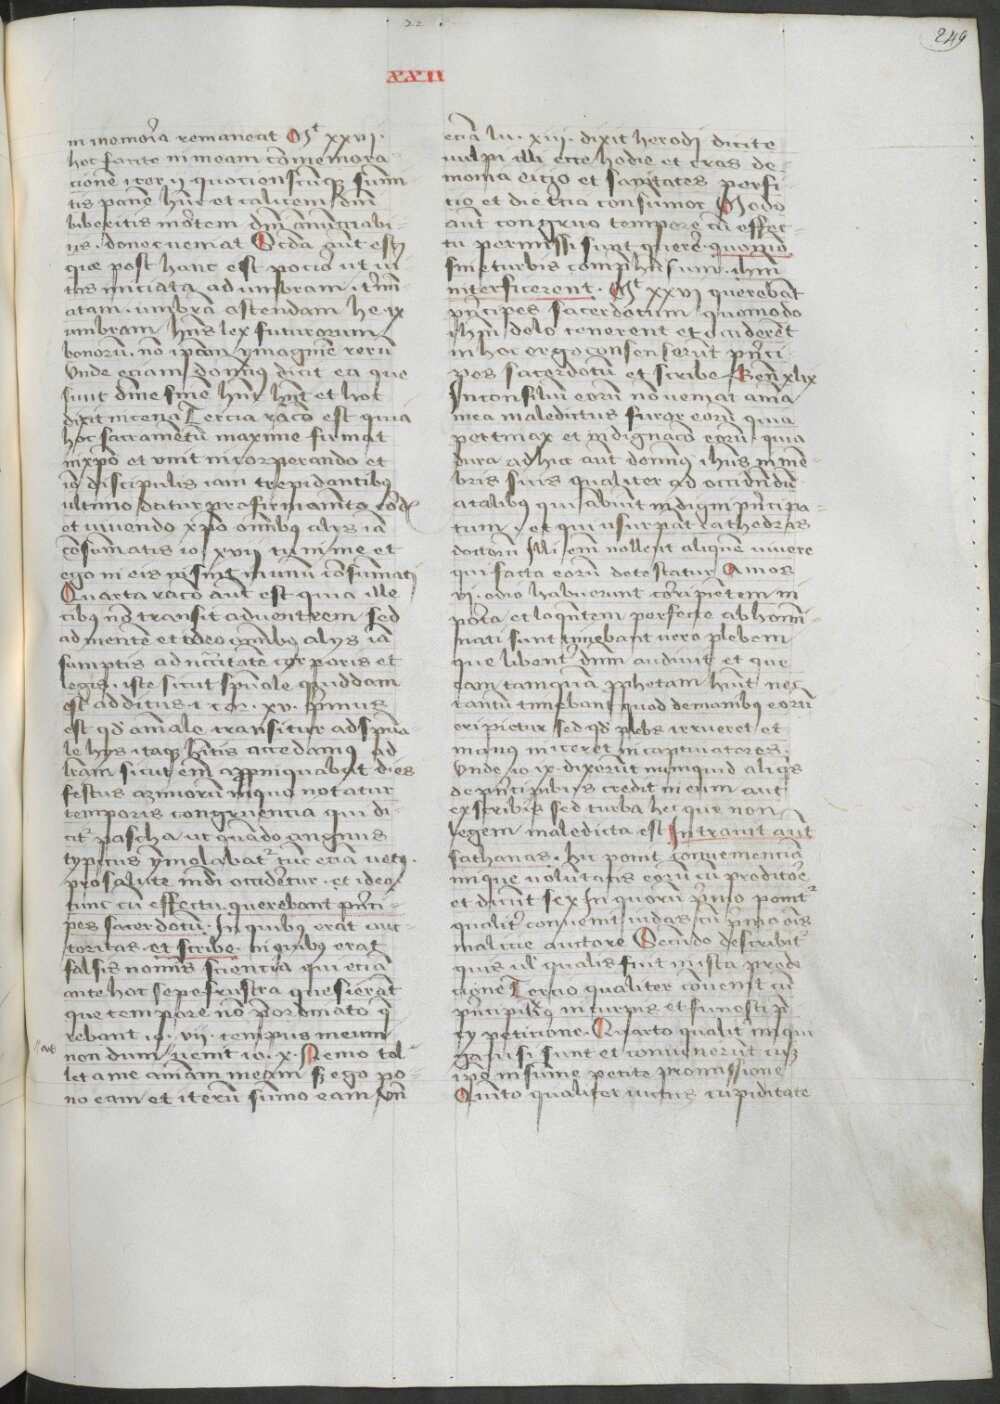 22
249
XXII
in memoria remaneat Mt xxvi.
hoc facite in meam cōmemora-
cionē iter ij quocienscūq sumi
tis panē hūc et calicem dnī
biberitis mōrtem dnī annūciabi-
tis. donec veniat Scda aut est
que post hanc est pocior ut vi-
tas iniciata ad umbram
atam. umbrā ostendam he ix
umbram hns lex futurorum
bonorū. nō ipam ymaginē rerū
Unde eciam domin9 dicit ea que
sunt dīne finē hnt et hoc
dixit in cena Tercia racō est quia
hoc sacramētū maxime firmat
in xpō et unit incorporando et
iō discipulis iam trepidantibus
ultimo datur pro firmamēto
et vivendo xpō omīb9 alijs iā
cōsumatis io. xvij tu in me et
ego in eis ut sint in unū cōsumati
Quarta racō aut est quia ille
cibus nō transit ad ventrem sed
ad mentē et ideo omīb9 alys iā
sumptis ad ncc̄itatē corporis et
legis. iste sicut spūale quiddam
est additus. i cor. xv. prius
est qd aīale transitur ad spūa
le hijs itaq hītis accedam9 ad
lram sicut em appīnquabat dies
festus azimorū in quo notatur
temporis congruencia qui di-
citr pascha ut quādo angnus
typicus ymolabatr tūc eciā ver9.
pro salute mdi occiderctur. et ideo
tunc cū effectu querebant pīnci-
pes sacerdotū. In quibus erat auc-
toritas. et scribe. in quibus erat
falsis nomīs sciencia qui eciā
ante hoc sepe frustra quesierāt
que tempore nō
rebant io. vii. tempus meum
non dum venit io. x. Nemo tol-
let a me aīam meam sz ego po-
no eam et iterū sumo eam
eciā lu. xiii. dixit herodi dicite
vulpi illi ecce hodie et cras de-
monia eicio et sanitates perfi-
cio et die tcia consumor Modo
aut congruo tempore cū effec-
tu permissi sunt querē. quomō
sine turbis comphensum. ihm
interficerent. Mt xxvi querebāt
pīncipes sacerdotum quomodo
ihm dolo tenerent et occiderēt
in hoc ergo consenserūt pīnci
pes sacerdotū et scribe. Gen xlix
In consiliū eorū nō veniat aīa
mea maledictus furor eorū quia
pertinax et indignacō eorū quia
dura ad huc aut domin9 ihus in mē-
bris suis qualiter ad occidēdū
a talibus qui abiūt indigni pīncipa-
tum. et qui usurpāt cathedras
doctorū Illi em nollent aliquē vivere
qui facta eorū detestatur Amos
vi. odio habuerunt corripiētem in
porta et loquētem perfecte abhomi-
nati sunt timebant vero plebem
que libentr dnm audivit et que
eam tamquā pphetam hūit nec
tantū timebant quod de manibus eorū
eripietur sed qd plebs irrueret et
manus iniceret in captivatores.
Unde io ix. dixerūt numquid aliqs
de pīncipibus credit in eum aut
ex scribis sed turba hec que non
legem maledicta est Intravit aūt
sathanas. hic ponit convenienciā
inique volūtatis eorū cū proditoē
et dicūt sex In quorū pīmo ponitr
qualitr convenit iudas cū pīncīa oīs
malicie auctore Secundo describitr
quis ul qualis fuit in ista prodi-
cione Tercio qualiter cōvenit cū
pīncipib9 in turpis et funesti p-
cy peticione. Quarto qualitr iniqui
gavisi sunt et convenerūt cuz
ipo in summe petite promissione
Quito qualiter victus cupiditate